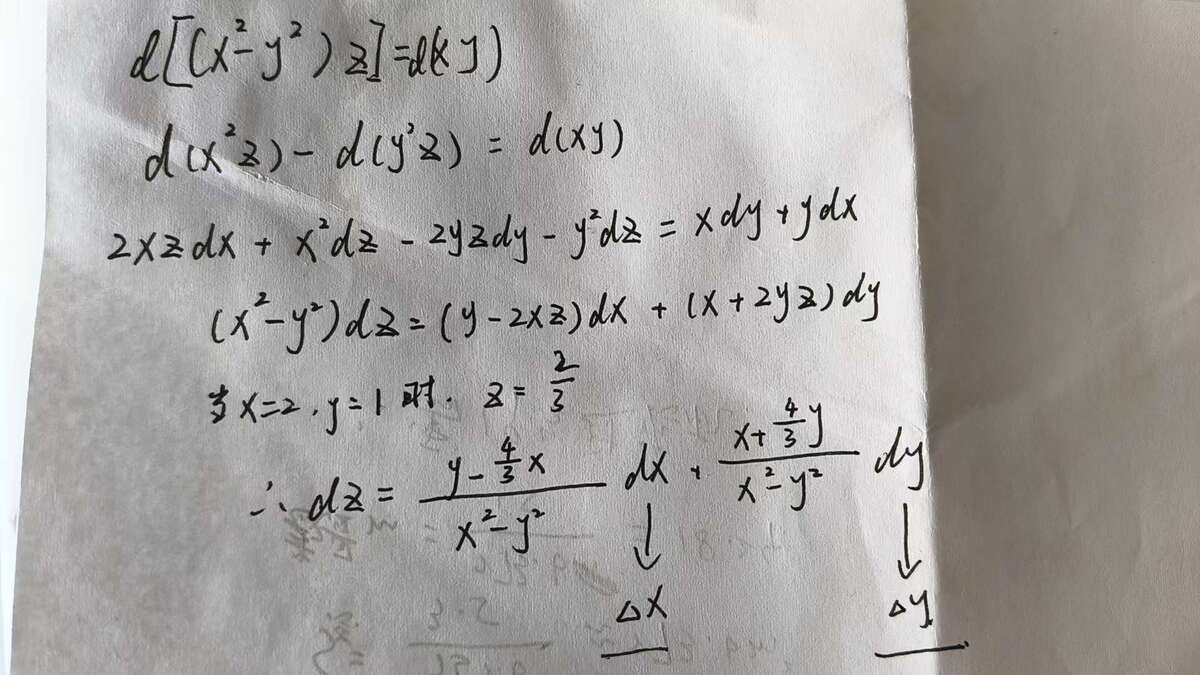 d[(x²-y²)z]=d(xy)
d(x²z)-d(y²z)=d(xy)
2xzdx+x²dz-2yzdy-y²dz=xdy+ydx
(x²-y²)dz=(y-2xz)dx+(x+2yz)dy
当x=2,y=1时. z=2/3
∴dz=(y-4/3x)/(x²-y²)dx+(x+4/3y)/(x²-y²)dy
↓ ↓
△x △y